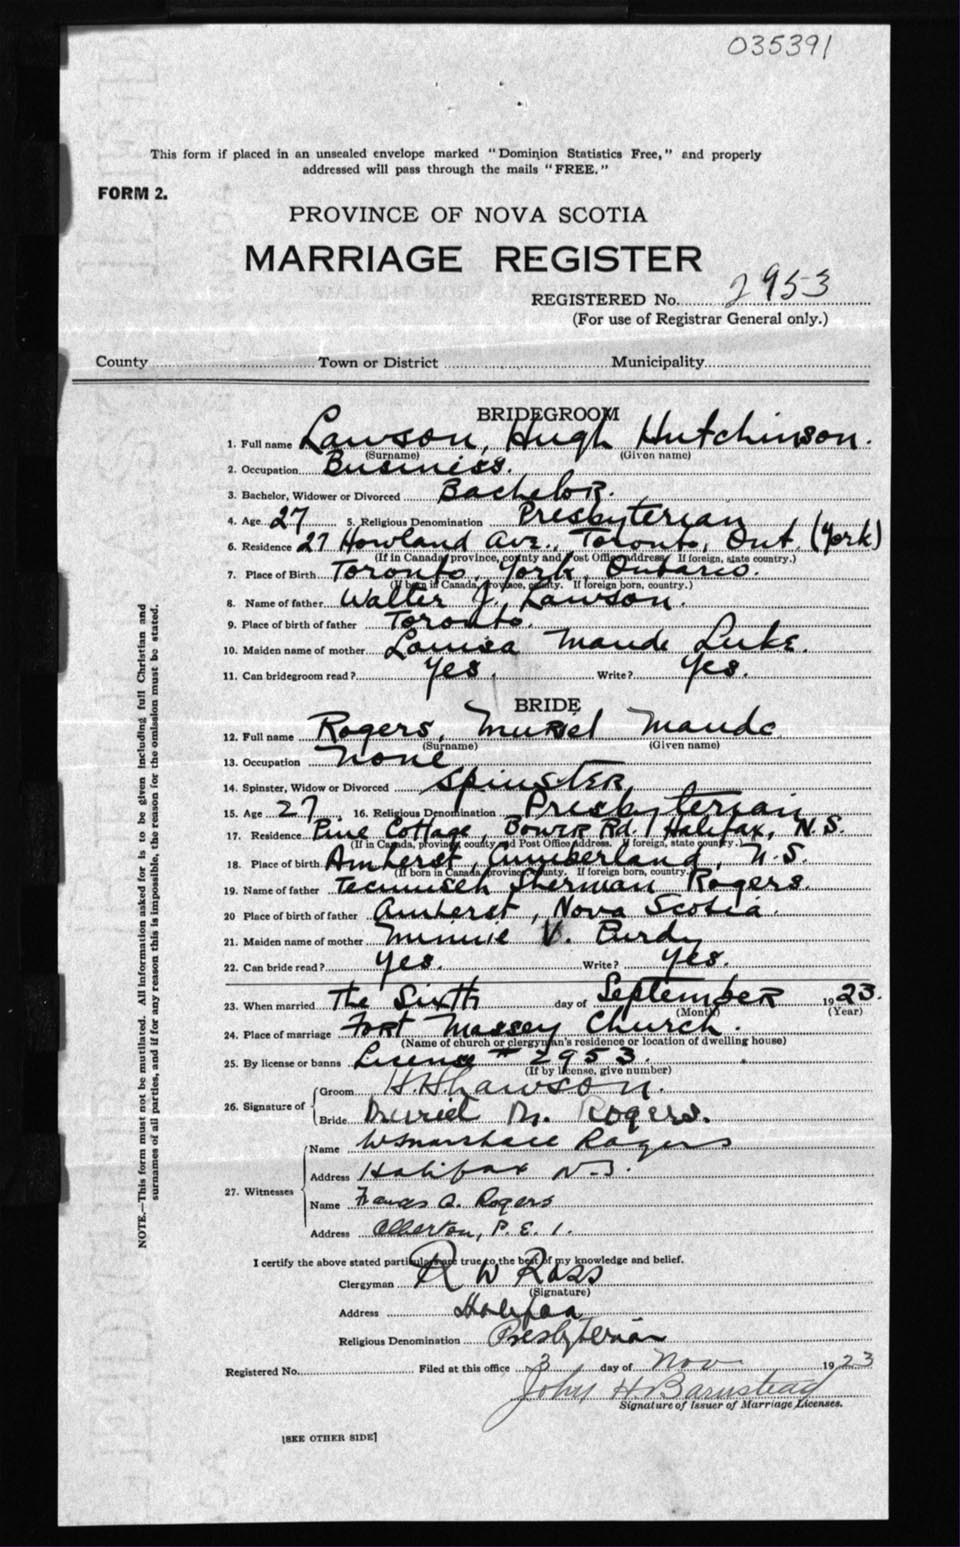 035391
This form if placed in an unsealed envelope marked "Dominion Statistics Free," and properly
addressed will pass through the mails "FREE."
FORM 2.
PROVINCE OF NOVA SCOTIA
MARRIAGE REGISTER
REGISTERED No. 2953
(For use of Registrar General only.)
County Town or District Municipality
BRIDEGROOM
1. Full name Lawson, Hugh Hutchinson.
(Surname) (Given name)
2. Occupation Business.
3. Bachelor, Widower or Divorced Bachelor.
4. Age 27 5. Religious Denomination Presbyterian
6. Residence 27 Howland Ave., Toronto, Ont. (York)
(If in Canada, province, county and Post Office address. If foreign, state country.)
7. Place of Birth Toronto, York, Ontario.
(If born in Canada, province, county. If foreign born, country.)
8. Name of father Walter J. Lawson.
9. Place of birth of father Toronto.
10. Maiden name of mother Louisa Maude Luke.
11. Can bridegroom read? Yes. Write? Yes.
BRIDE
12. Full name Rogers, Muriel Maude
(Surname) (Given name)
13. Occupation None
14. Spinster, Widow or Divorced Spinster
15. Age 27 16. Religious Denomination Presbyterian
17. Residence Pine Cottage, Bower Rd. Halifax, N.S.
(If in Canada, province, county and Post Office Address. If foreign, state country.)
18. Place of birth Amherst, Cumberland, N.S.
(If born in Canada, province, county. If foreign born, country.)
19. Name of father Tecumseh Sherman Rogers.
20 Place of birth of father Amherst, Nova Scotia.
21. Maiden name of mother Minnie V. Purdy
22. Can bride read? Yes. Write? Yes.
23. When married The Sixth day of September 1923.
(Month) (Year)
24. Place of marriage Fort Massey Church.
(Name of church or clergyman's residence or location of dwelling house)
25. By license or banns License # 2953.
(If by license, give number)
26. Signature of Groom H.H. Lawson.
Bride Muriel M. Rogers.
27. Witnesses Name W Marshall Rogers
Address Halifax N.S.
Name Frances A. Rogers
Address Alberton, P.E.I.
I certify the above stated particulars are true to the best of my knowledge and belief.
Clergyman R W Ross
(Signature)
Address Halifax
Religious Denomination Presbyterian
Registered No. Filed at this office 3 day of Nov 1923
John H. Barnstead
Signature of Issuer of Marriage Licenses.
[SEE OTHER SIDE]
NOTE.—This form must not be mutilated. All information asked for is to be given including full Christian and
surnames of all parties, and if for any reason this is impossible, the reason for the omission must be stated.